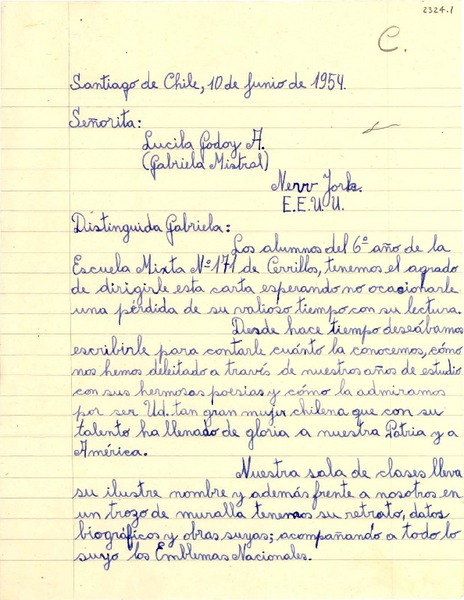 2324.1
C.
Santiago de Chile, 10 de Junio de 1954.
Señorita:
Lucila Godoy A.
(Gabriela Mistral)
Nevv York.
E.E.U.U.
Distinguida Gabriela:
Los alumnos del 6º año de la
Escuela Mixta Nº 171 de Cerrillos, tenemos el agrado
de dirigirle esta carta esperando no ocacionarle
una pérdida de su valioso tiempo con su lectura.
Desde hace tiempo deseábamos
escribirle para contarle cuánto la conocemos, cómo
nos hemos deleitado a través de nuestros años de estudio
con sus hermosas poesias y cómo la admiramos
por ser Ud. tan gran mujer chilena que con su
talento ha llenado de gloria a nuestra Patria y a
América.
Nuestra sala de clases lleva
su ilustre nombre y además frente a nosotros en
un trozo de muralla tenemos su retrato, datos
biográficos y obras suyas; acompañando a todo lo
suyo los Emblemas Nacionales.